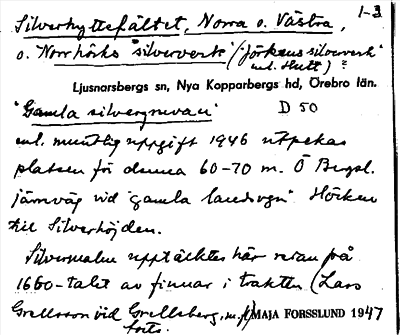 1-3
Silverhyttefältet, Norra o. Västra,
o. Norrhörks "silververk" ("Hörkens silververk"
enl. Hult) ?
Ljusnarsbergs sn, Nya Kopparbergs hd, Örebro län.
"Gamla silvergruvan" D 50
enl. muntlig uppgift 1946 utpekas
platsen för denna 60-70 m. Ö Bergsl.
järnväg vid "gamla landsvägen" Hörken
till Silverhöjden.
Silvermalm upptäcktes här redan på
1660-talet av finnar i trakten (Lars
Grellsson vid Grellsberg, m.fl.) MAJA FORSSLUND 1947
forts.